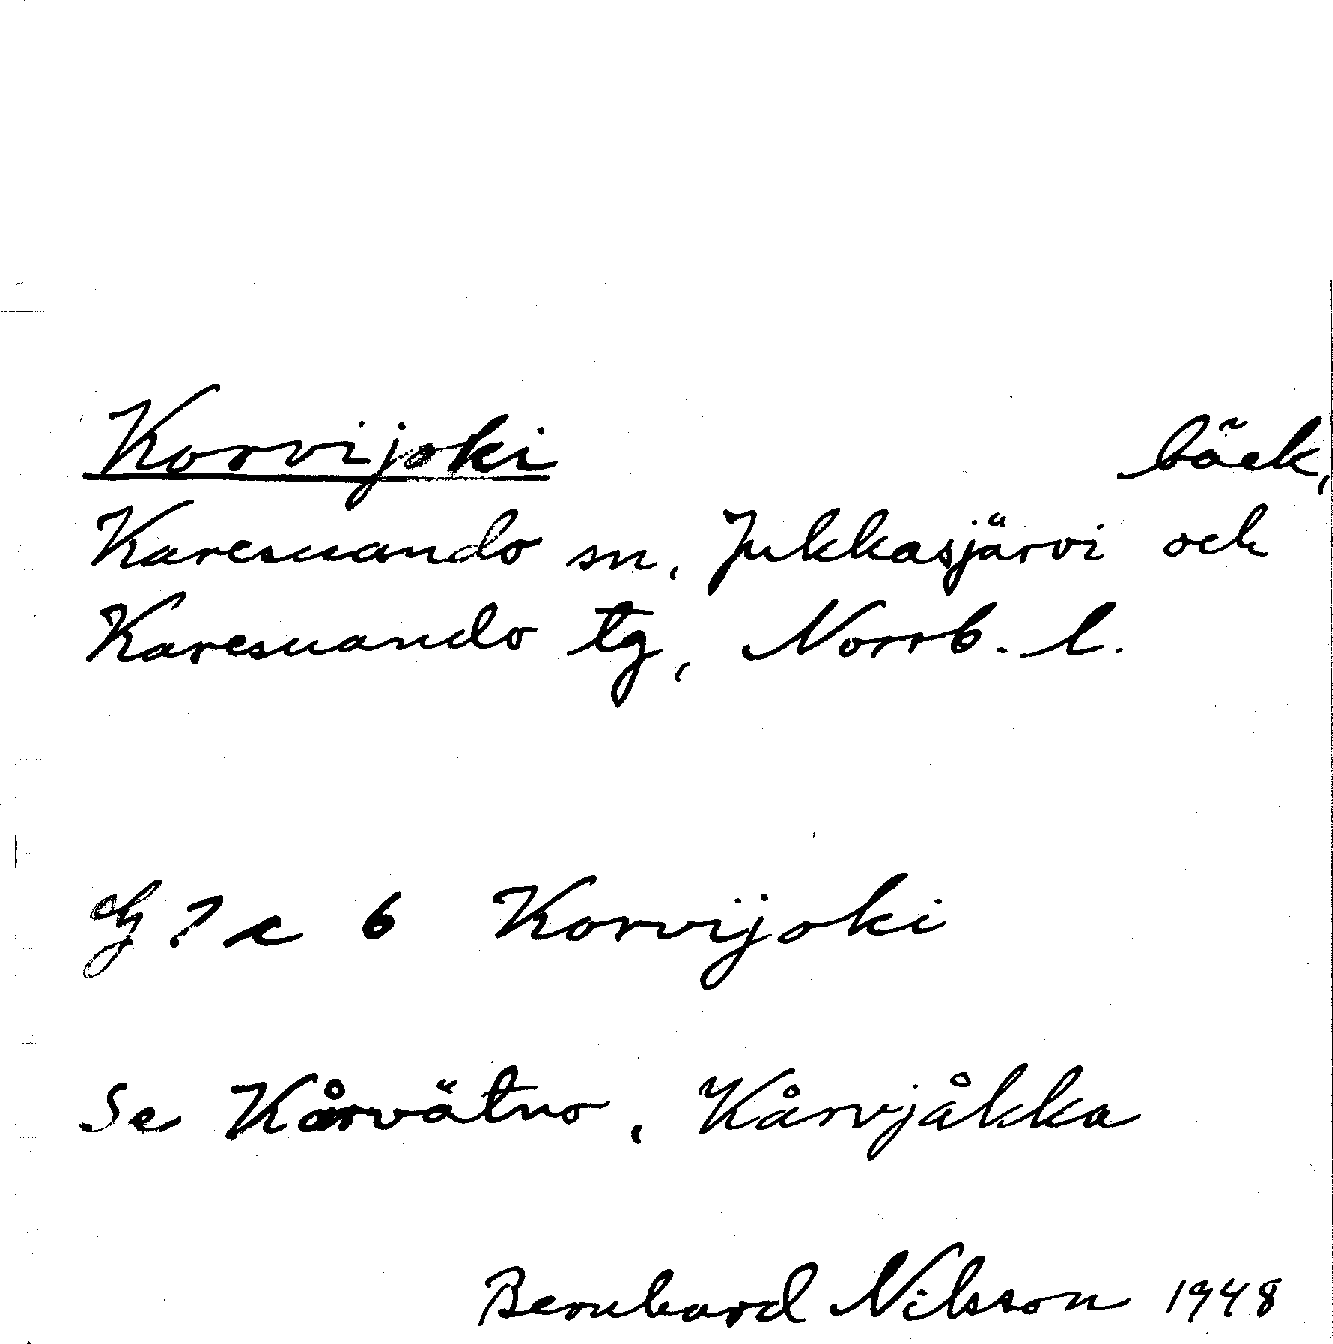 Korvijoki bäck,
Karesuando sn, Jukkasjärvi och
Karesuando tg, Norrb. l.
G 7 c 6 Korvijoki
Se Kårvätno, Kårvjåkka
Bernhard Nilsson 1948